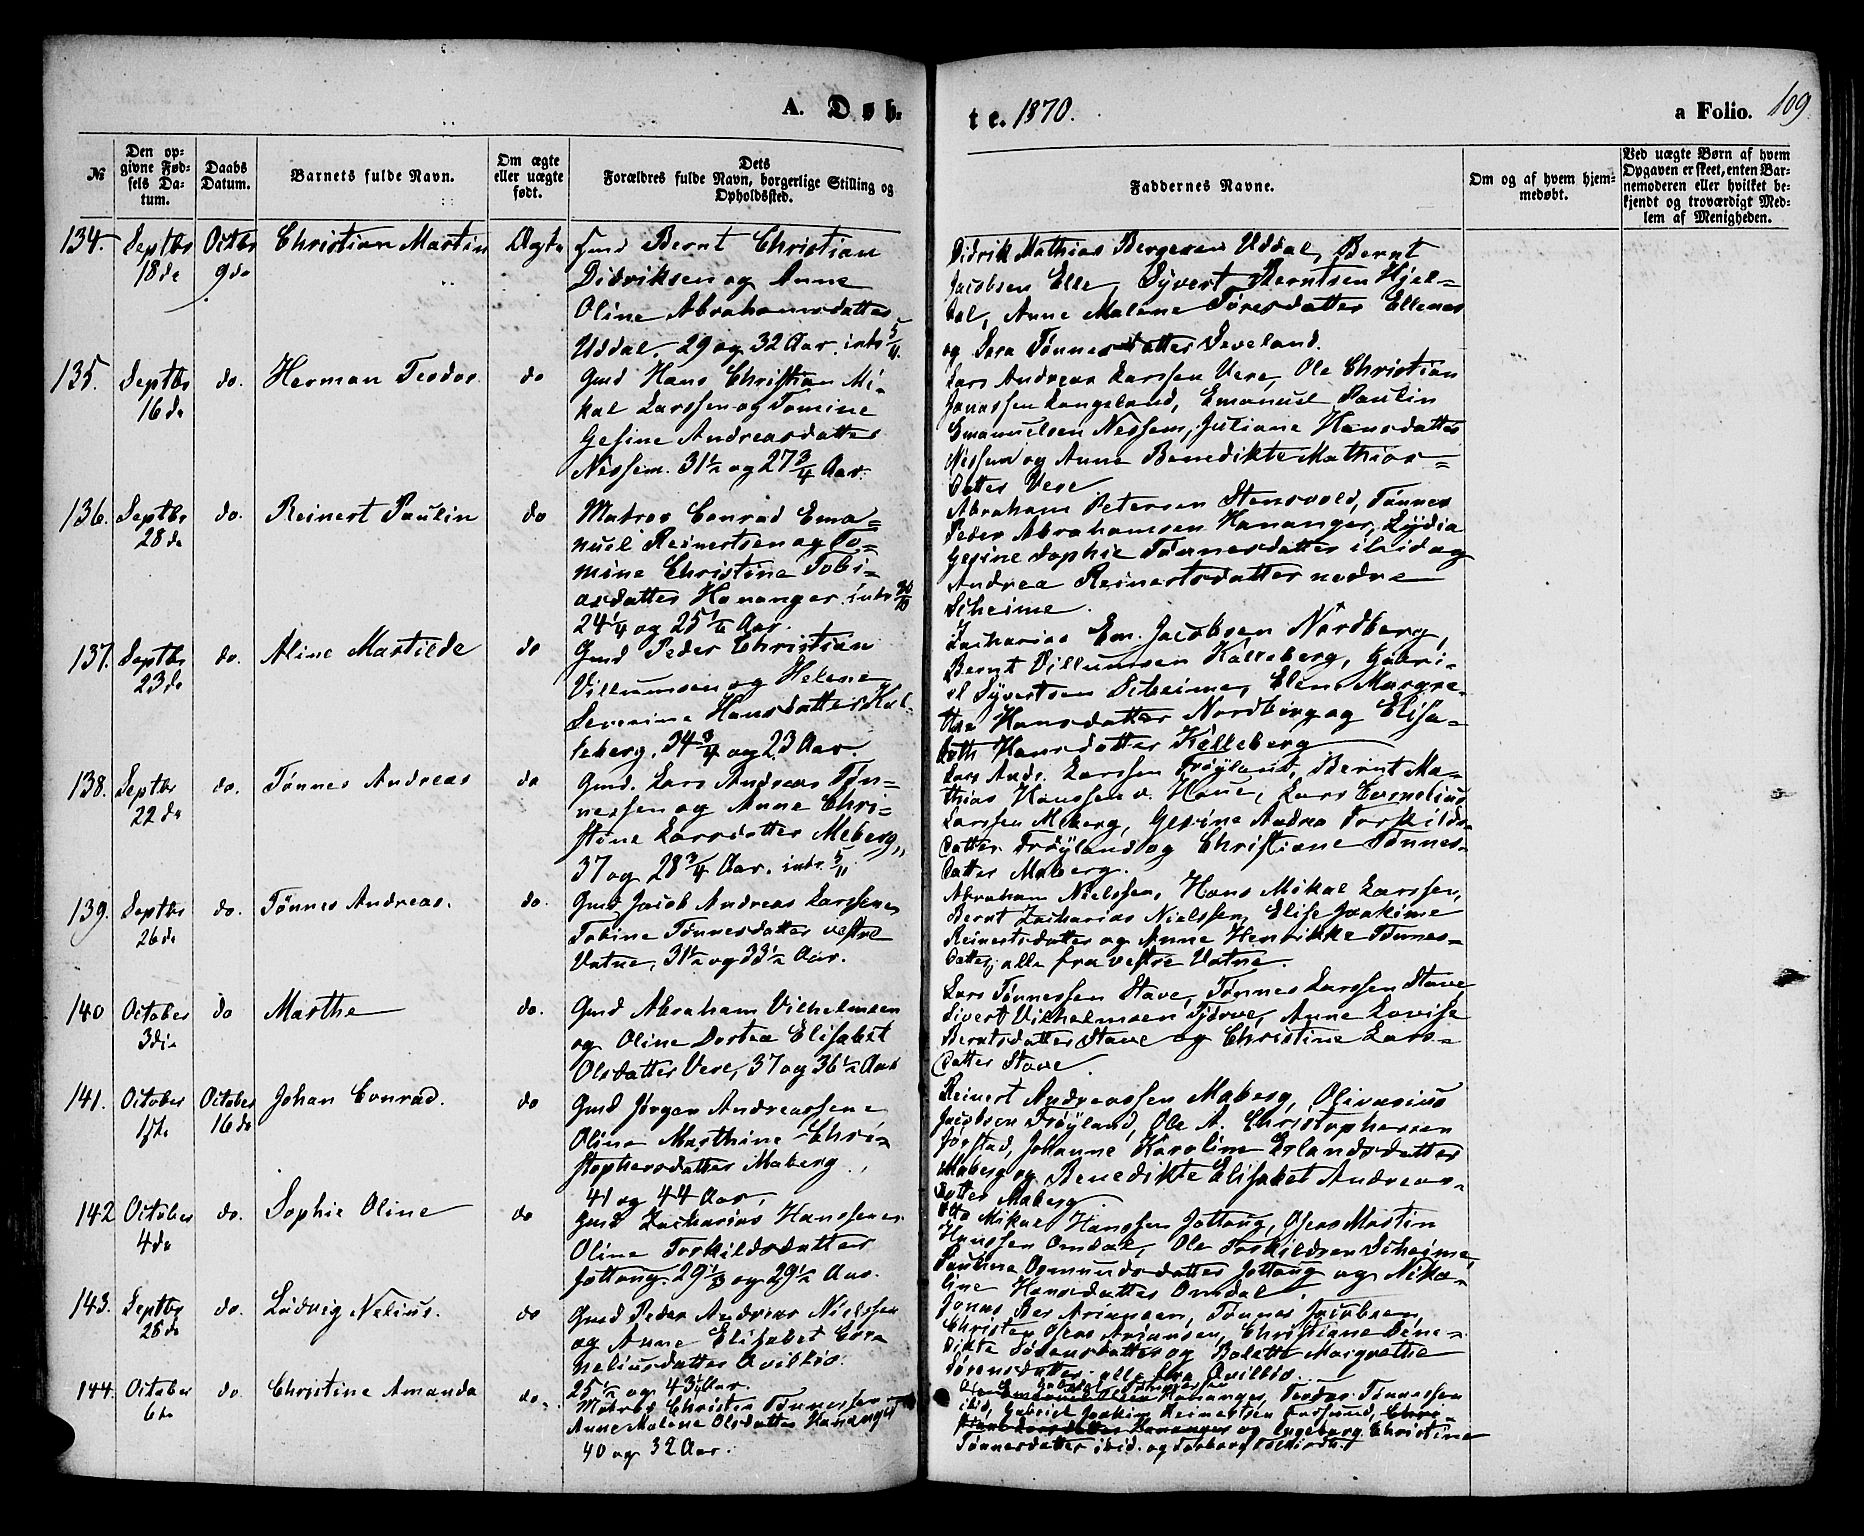 A. Døb-
te. 1870.
a Folio. 109.
№
Den op-
givne Fød-
sels Da-
tum.
Daabs
Datum.
Barnets fulde Navn.
Om ægte
eller uægte
født.
Dets
Forældres fulde Navn, borgerlige Stilling og
Opholdssted.
Faddernes Navne.
Om og af hvem hjem-
medøbt.
Ved uægte Børn af hvem
Opgaven er skeet, enten Bar-
nemoderen eller hvilket be-
kjendt og troværdigt Med-
lem af Menigheden.
134. Septbr 18de Octbr 9de Christian Martin Ægte
Gmd Bernt Christian
Didriksen og Anne
Oline Abrahamsdatter
Uddal. 29 og 32 Aar. intr 5/11.
Didrik Mathias Bergesen Uddal, Bernt
Jacobsen Elle, Syvert Berntsen Hjel-
dal, Anne Malene Tøresdatter Ellenes
og Sara Tønnesdatter Seveland.
135. Septbr 16de do. Herman Teodor do
Gmd Hans Christian Mi-
kal Larssen og Tomine
Gesine Andreasdatter
Nessem. 31 1/2 og 27 3/4 Aar.
Lars Andreas Larssen Vere, Ole Christian
Jonassen Langeland, Emanuel Paulin
Emanuelsen Nessem, Juliane Hansdatter
Nessem og Anne Benedikte Mathias-
datter Vere
136. Septbr 28de do. Reinert Paulin do
Matros Conrad Ema-
nuel Reinertsen og To-
mine Christine Tobi-
asdatter Hananger. intr 30/10
24 1/4 og 25 1/4 Aar.
Abraham Petersen Stensvold, Tønnes
Peder Abrahamsen Hananger, Lydia
Gesine Sophie Tønnesdatter ibid og
Andrea Reinertsdatter nedre
Skeime.
137. Septbr 23de do. Aline Martilde do
Gmd Peder Christian
Villumsen og Helene
Severine Hansdatter Kal-
leberg. 34 3/4 og 23 Aar.
Zacharias Em. Jacobsen Nordberg,
Bernt Villumsen Kalleberg, Gabri-
el Syvertsen Skeime, Elen Margre-
the Hansdatter Nordberg og Elisa-
beth Hansdatter Kalleberg
138. Septbr 22de do. Tønnes Andreas do
Gmd. Lars Andreas Tøn-
nessen og Anne Chri-
stine Larsdatter Meberg,
37 og 28 3/4 Aar. intr. 5/11
Lars Andr. Larssen Frøyland, Bernt Ma-
thias Hanssen v. Haue, Lars Cornelius
Larssen Meberg, Gesine Andrea Torkilds-
datter Frøyland og Christiane Tønnes-
datter Maberg.
139. Septbr 26de do. Tønnes Andreas. do.
Gmd Jacob Andreas Larssen o
Tobine Tønnesdatter vestre
Vatne, 31 1/2 og 33 1/2 Aar.
Abraham Nielssen, Hans Mikal Larssen,
Bernt Zacharias Nielssen, Elise Joakime
Reinertsdatter og Anne Henrikke Tønnes-
datter, alle fra vestre Vatne.
140 October 3die do Marthe do.
Gmd Abraham Vilhelmsen
og Oline Dortea Elisabet
Olsdatter Vere, 37 og 36 1/2 Aar
Lars Tønnessen Stave, Tønnes Larssen Stave
Sivert Vilhelmsen Tjørve, Anne Lovise
Berntsdatter Stave og Christine Lars-
datter Stave.
141. October 1ste October 16de Johan Conrad. do
Gmd Jørgen Andreassen o
Oline Marthine Chri-
stophersdatter Maberg.
41 og 44 Aar,
Reinert Andreassen Maberg, Olivarius
Jacobsen Frøyland, Ole A. Christophersen
Jørstad, Johanne Karoline Erlandsdatter
Maberg og Benedikte Elisabet Andreas-
datter Maberg
142 October 4de do. Sophie Oline do
Gmd Zacharias Hanssen o
Oline Torkildsdatter
Jøllaug. 29 1/3 og 29 1/2 Aar.
Otto Mikal Hanssen Jøllaug, Oseas Martin
Hanssen Omdal, Ole Torkildsen Skeime,
Pauline Osmundsdatter Jøllaug og Nika-
line Hansdatter Omdal.
143. Septbr 28de do. Ludvig Nelius. do
Gmd Peder Andreas Nielssen
og Anne Elisabet Cor-
neliusdatter Qviljo.
25 1/2 og 43 1/4 Aar.
Jonas Ber Ariansen, Tønnes Jacobsen,
Christen Oseas Ariansen, Christiane Bene-
dikte Sørensdatter og Bolette Margrethe
Sørensdatter, alle fra Qviljo.
144. October 6te do. Christine Amanda do.
Matros Christen Tønnessen o
Anne Malene Olsdatter Hananger
40 og 32 Aar.
Gabriel Tønnessen
Hananger, Teodor Tønnessen
ibid, Gabriel Joakim Reinertsen Farsund,
og Ingeborg Christine
Tønnesdatter ibid. og